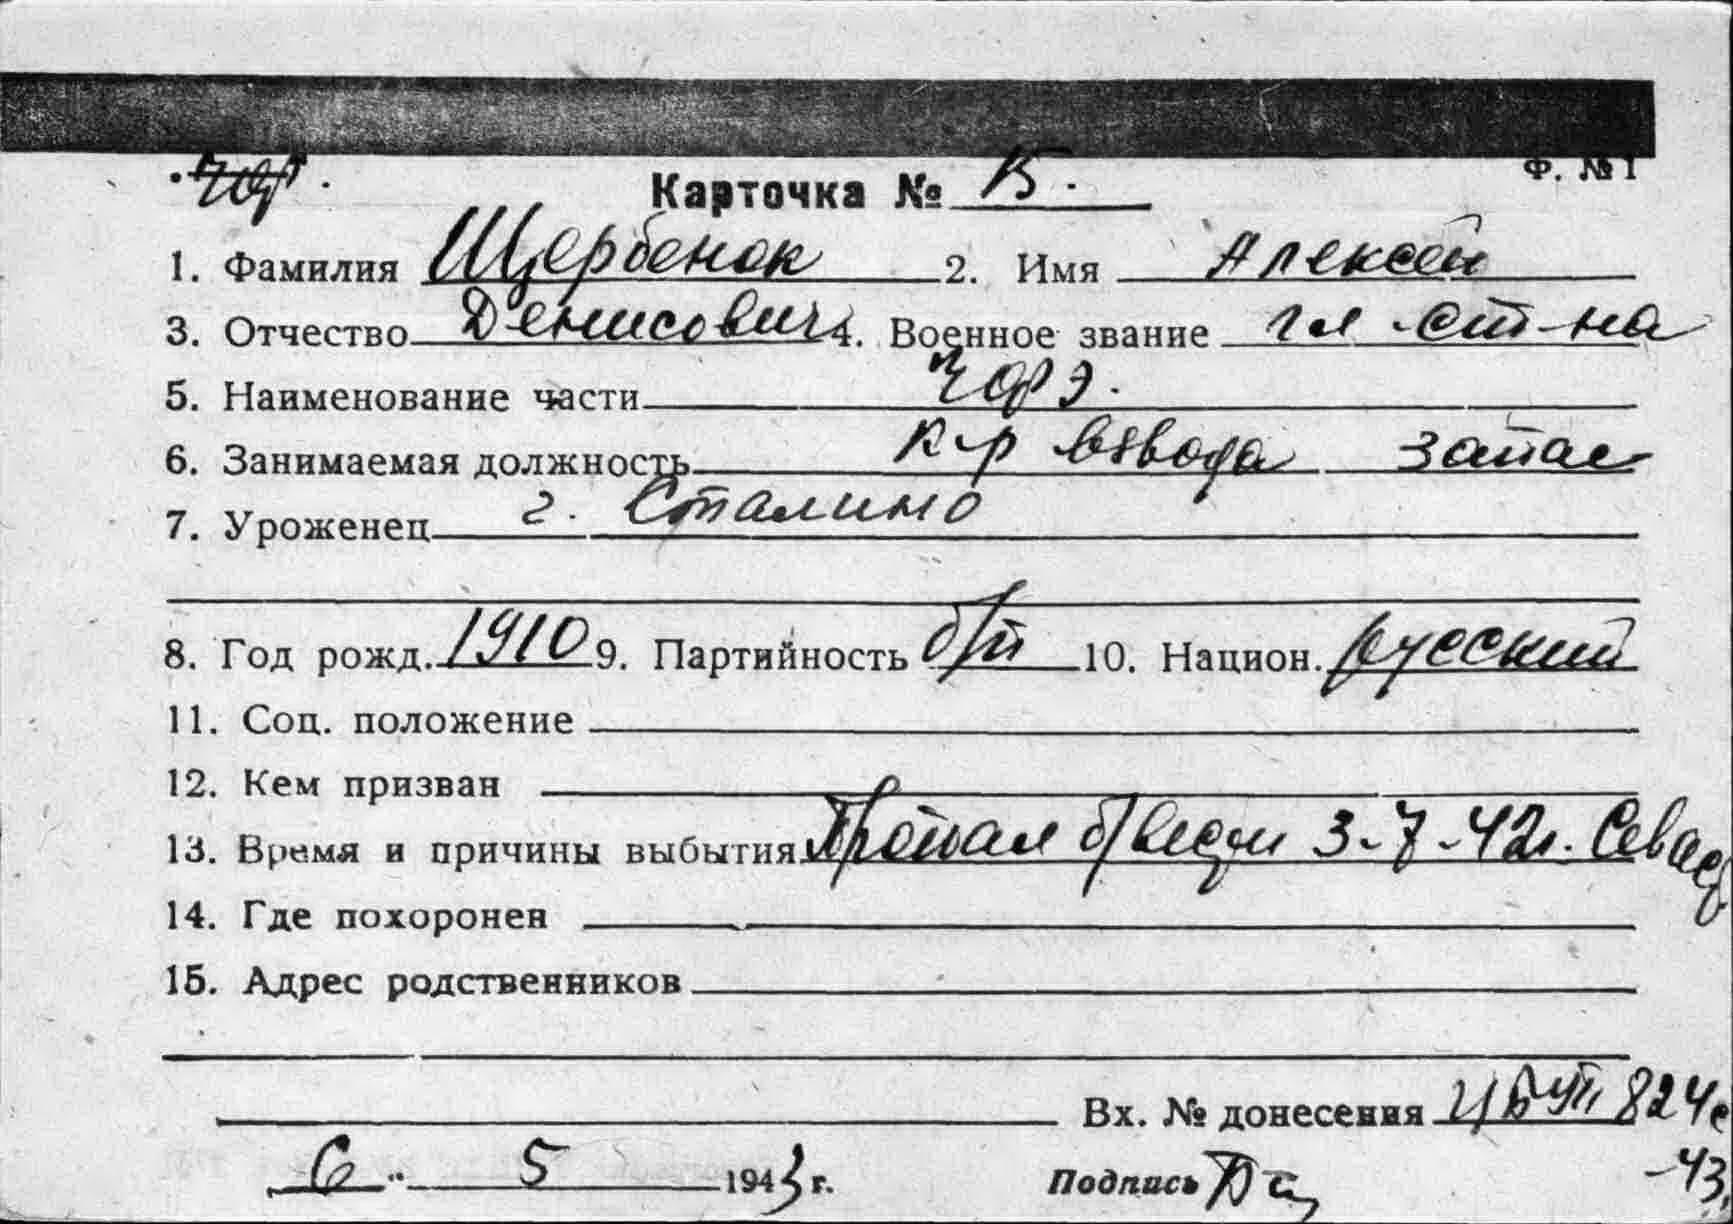 Ф. № 1
Карточка № В.
1. Фамилия Щербенок 2. Имя Алексей
3. Отчество Денисович 4. Военное звание гл ст-на
5. Наименование части
6. Занимаемая должность к-р взвода запас
7. Уроженец г. Сталино
8. Год рожд. 1910 9. Партийность б/п 10. Национ. русский
11. Соц. положение
12. Кем призван
13. Время и причины выбытия Пропал б/вести 3-7-42г. Севаст
14. Где похоронен
15. Адрес родственников
Вх. № донесения 824с
-43
6 " 5 1943 г. Подпись